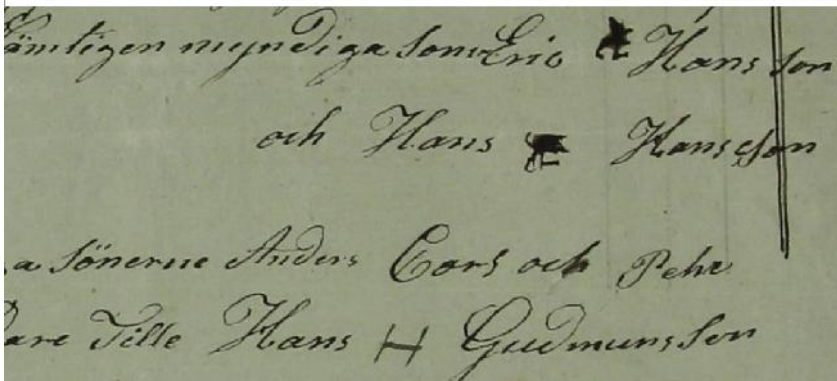 Sämtligen myndiga Son Eric Hansson
och Hans Hansson
a Sönerne Anders Lars och Pehr
are Tille Hans H Gudmunsson